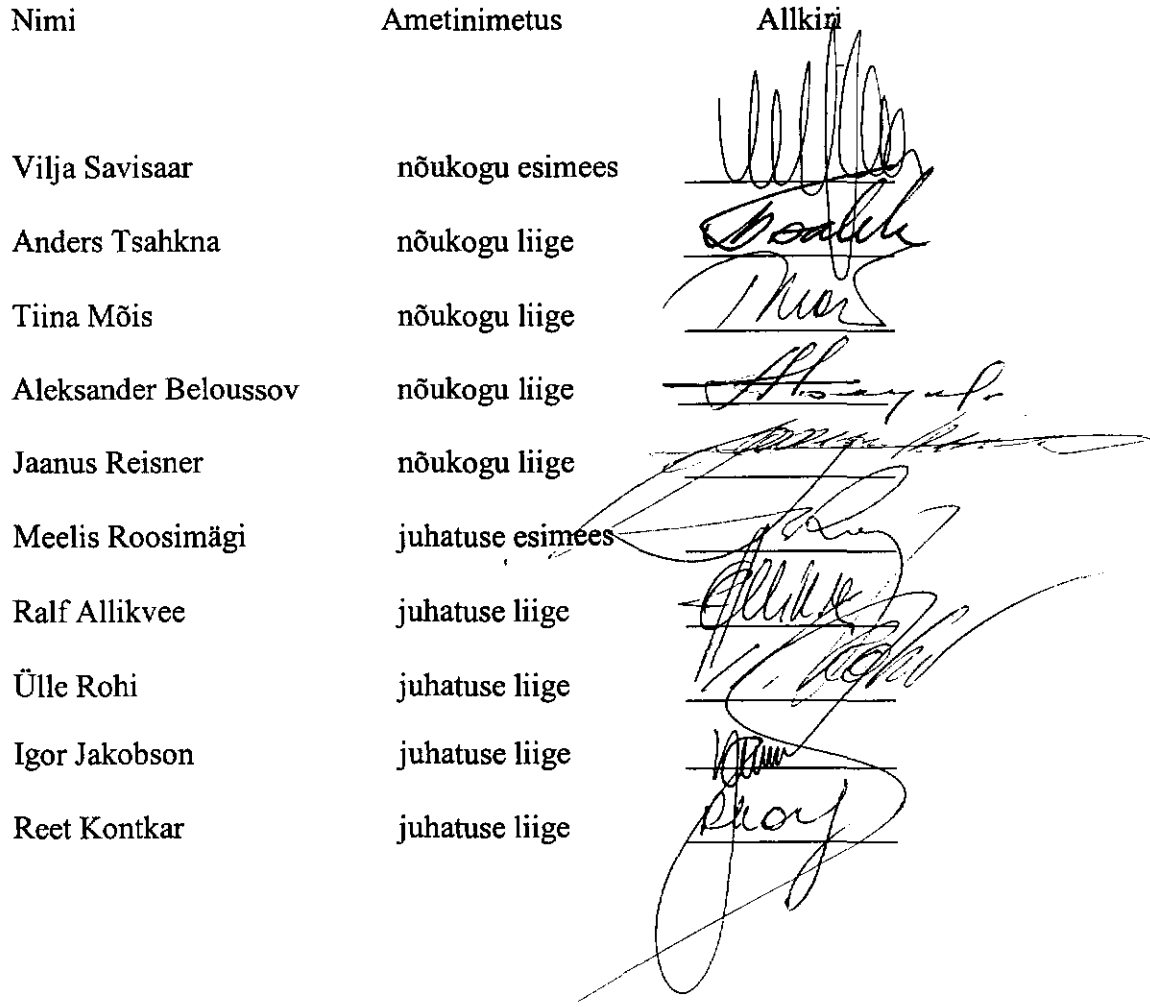 Nimi Ametinimetus Allkiri
Vilja Savisaar nõukogu esimees
Anders Tsahkna nõukogu liige
Tiina Mõis nõukogu liige
Aleksander Beloussov nõukogu liige
Jaanus Reisner nõukogu liige
Meelis Roosimägi juhatuse esimees
Ralf Allikvee juhatuse liige
Ülle Rohi juhatuse liige
Igor Jakobson juhatuse liige
Reet Kontkar juhatuse liige